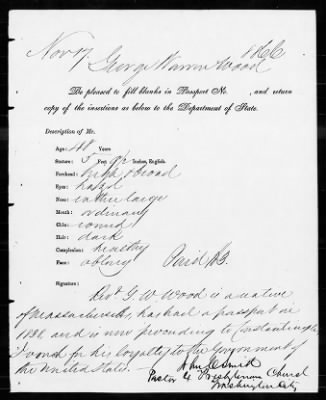 Nov 17 1866
George Warren Wood
Be pleased to fill blanks in Passport No. , and return
copy of the insertions as below to the Department of State.
Description of Mr.
Age: 48 Years
Stature: 5 Feet 9½ Inches, English.
Forehead: high & broad
Eyes: hazel
Nose: rather large
Mouth: ordinary
Chin: round
Hair: dark
Complexion: healthy
Face: oblong
Paid $3.
Signature:
Rev. G. W. Wood is a native
of Massachusetts, has had a passport in
and is now proceeding to Constantinople
I vouch for his loyalty to the Government of
the United States.
John C. Smith
Pastor 4 Presbyterian Church
Washington City